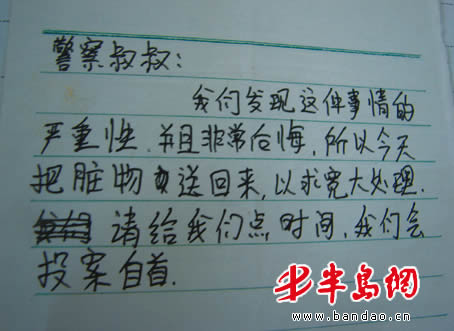 警察叔叔：
我们发现这件事情的
严重性.并且非常后悔.所以今天
把脏物送回来,以求宽大处理.
请给我们点时间,我们会
投案自首.
半岛网
www.bandao.cn